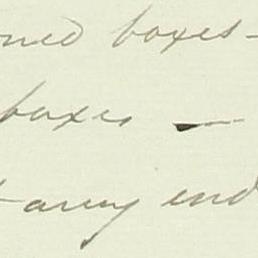 ned boxes -
boxes —
- any end